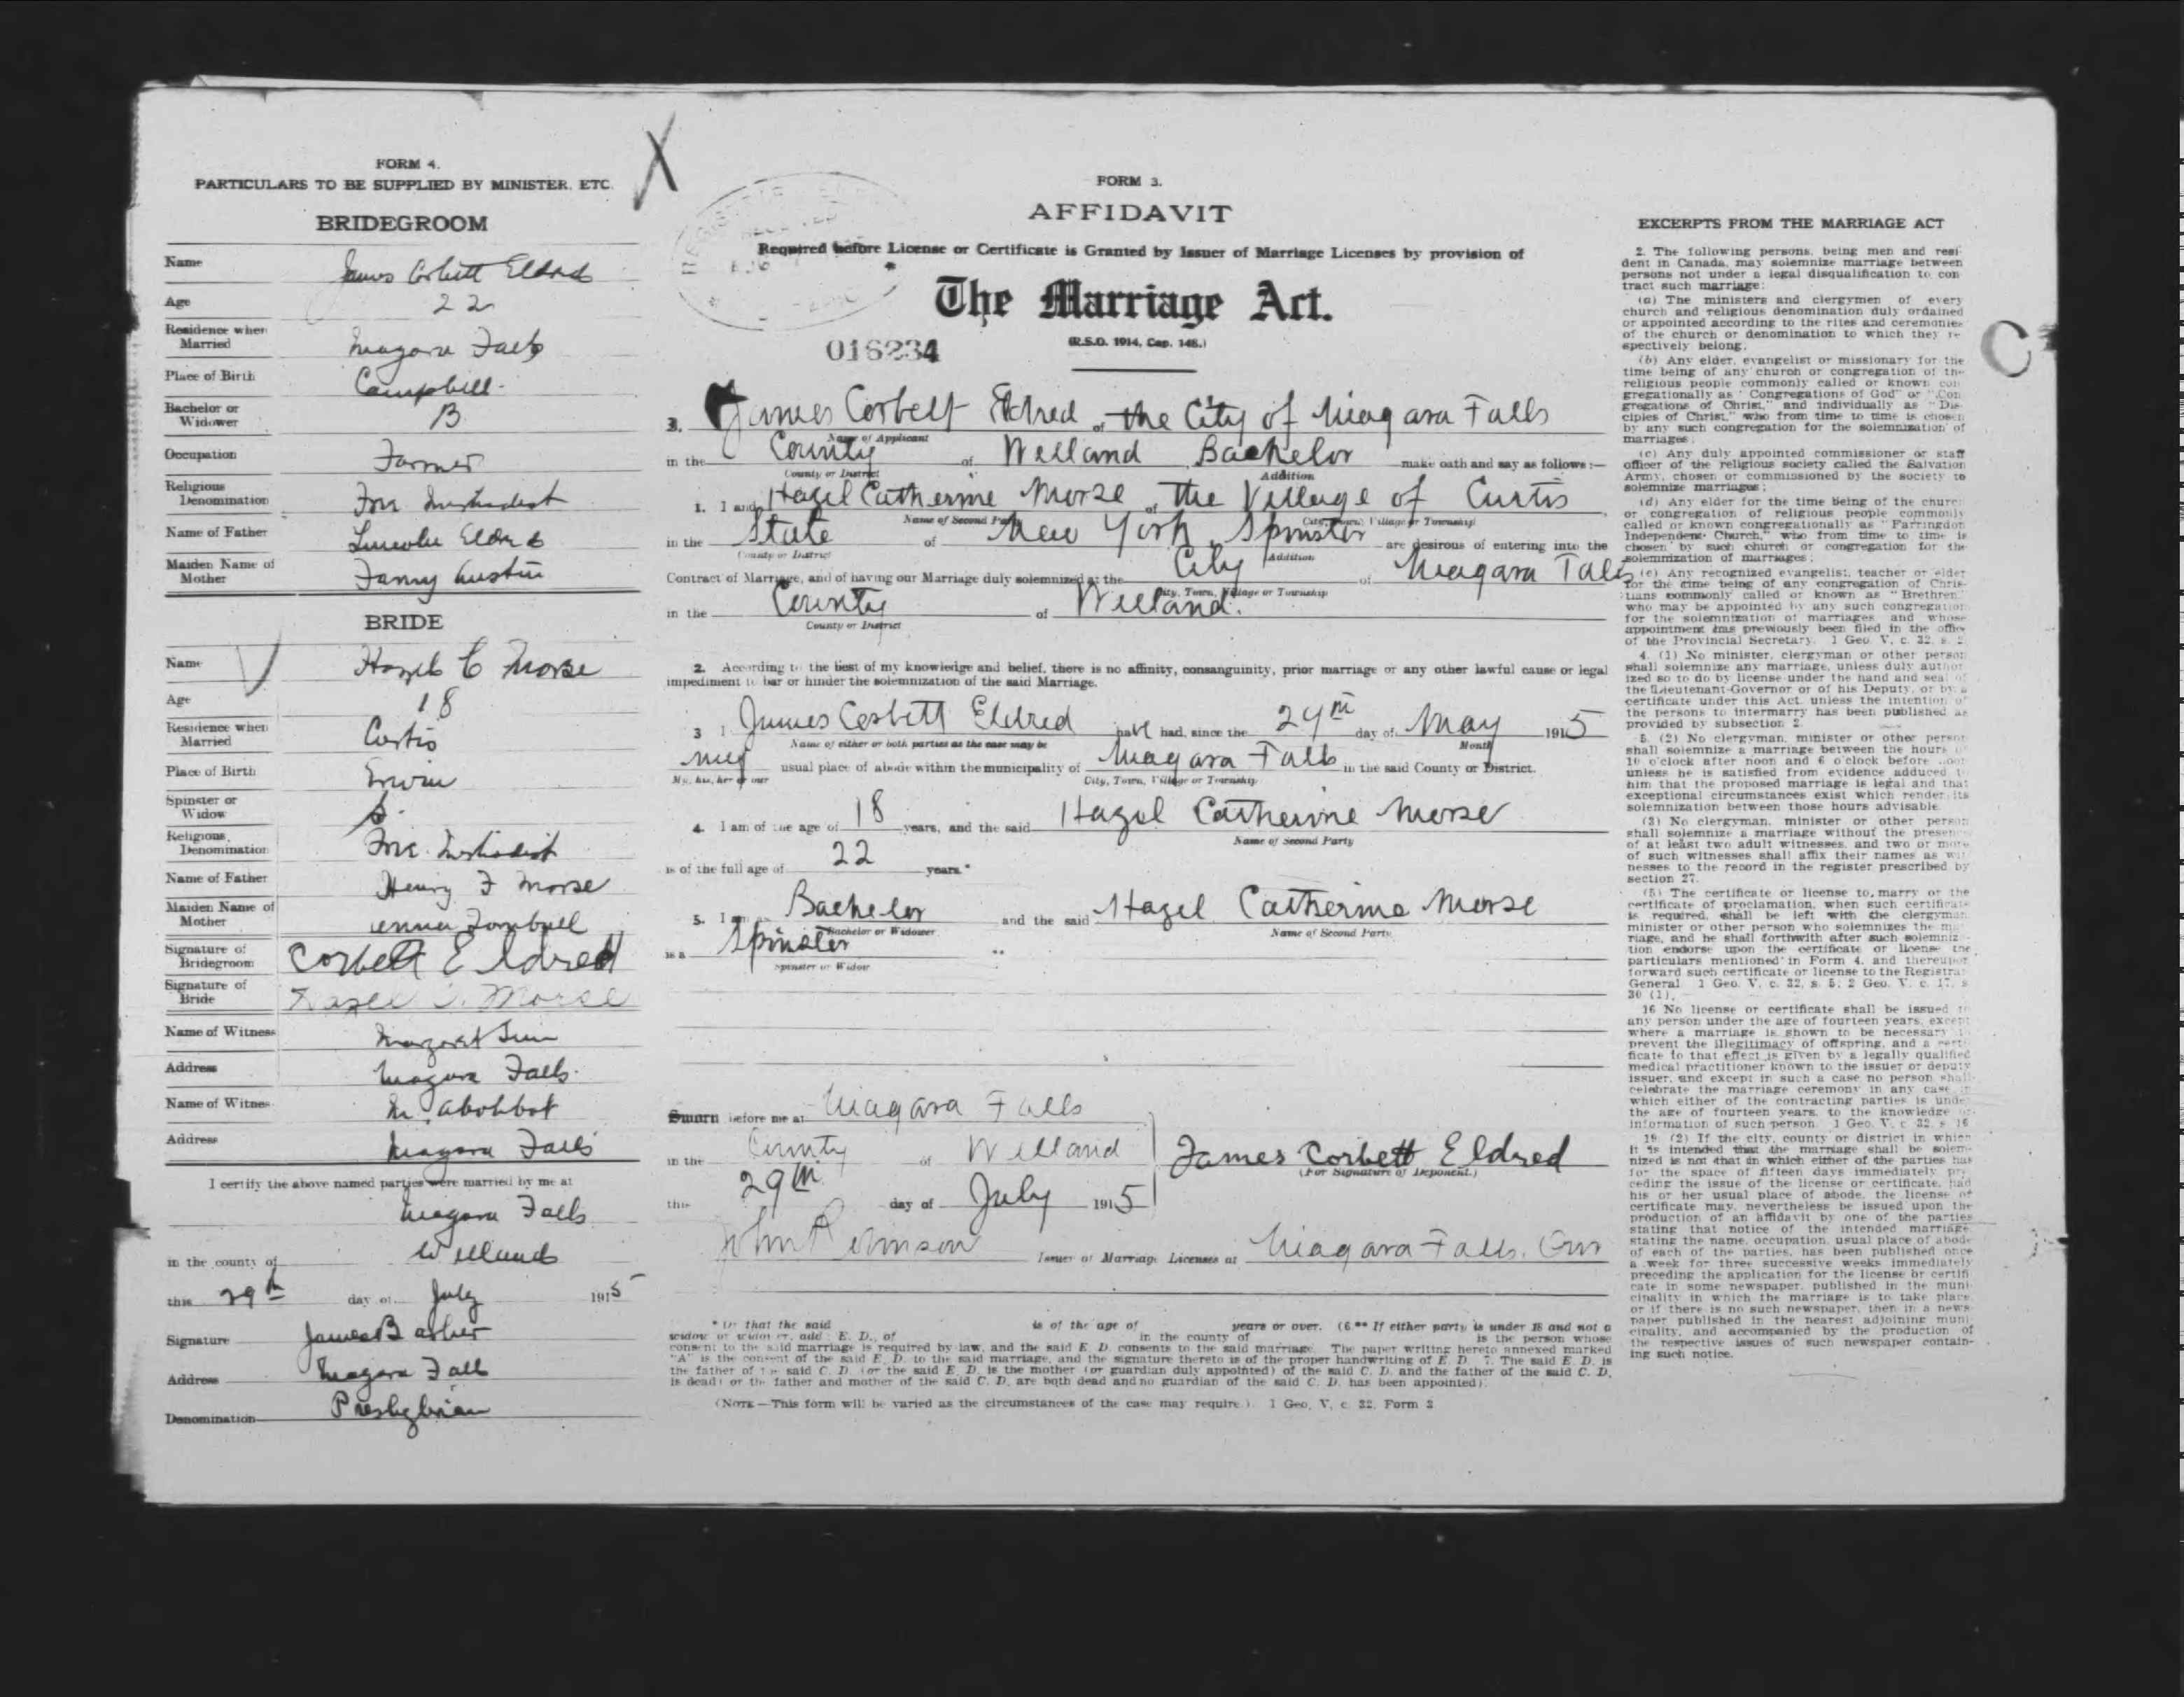 FORM 4.
PARTICULARS TO BE SUPPLIED BY MINISTER, ETC.
BRIDEGROOM
Name James Corbett Eldred
Age 22
Residence when Married Niagara Falls
Place of Birth Campbell
Bachelor or Widower B
Occupation Farmer
Religious Denomination Free Methodist
Name of Father Lincoln Eldred
Maiden Name of Mother Fanny Austin
BRIDE
Name Hazel C Morse
Age 18
Residence when Married Curtis
Place of Birth Erwin
Spinster or Widow S.
Religious Denomination Free Methodist
Name of Father Henry F Morse
Maiden Name of Mother
Signature of Bridegroom Corbett Eldred
Signature of Bride Hazel C. Morse
Name of Witness Margaret
Address Niagara Falls.
Name of Witness
Address Niagara Falls
I certify the above named parties were married by me at
Niagara Falls
in the county of Welland
this 29th day of July 1915
Signature James B
Address Niagara Fall
Denomination Presbyterian
X
FORM 3.
AFFIDAVIT
Required before License or Certificate is Granted by Issuer of Marriage Licenses by provision of
The Marriage Act.
(R.S.O. 1914, Cap. 148.)
016234
James Corbett Eldred of the City of Niagara Falls
Name of Applicant
in the County of Welland Bachelor make oath and say as follows:—
County or District Addition
1. I and Hazel Catherine Morse of the Village of Curtis
Name of Second Party City, Town, Village or Township
in the State of New York, Spinster are desirous of entering into the
County or District Addition
Contract of Marriage, and of having our Marriage duly solemnized at the City of Niagara Falls
City, Town, Village or Township
in the County of Welland.
County or District
2. According to the best of my knowledge and belief, there is no affinity, consanguinity, prior marriage or any other lawful cause or legal
impediment to bar or hinder the solemnization of the said Marriage.
3 I James Corbett Eldred have had, since the 29th day of May 1915
Name of either or both parties as the case may be Month
my usual place of abode within the municipality of Niagara Falls in the said County or District.
My, his, her or our City, Town, Village or Township
4. I am of the age of 18 years, and the said Hazel Catherine Morse
Name of Second Party
is of the full age of 22 years.*
5. I am a Bachelor and the said Hazel Catherine Morse
Bachelor or Widower Name of Second Party
is a Spinster **
Spinster or Widow
Sworn before me at Niagara Falls
in the County of Welland
James Corbett Eldred
(For Signature of Deponent.)
this 29th day of July 1915
John Robinson Issuer of Marriage Licenses at Niagara Falls, Ont
* Or that the said is of the age of years or over. (6.** If either party is under 18 and not a
widow or widower, add: E. D., of in the county of is the person whose
consent to the said marriage is required by law, and the said E. D. consents to the said marriage. The paper writing hereto annexed marked
"A" is the consent of the said E. D. to the said marriage, and the signature thereto is of the proper handwriting of E. D. 7. The said E. D. is
the father of the said C. D. (or the said E. D. is the mother (or guardian duly appointed) of the said C. D. and the father of the said C. D.
is dead) or the father and mother of the said C. D. are both dead and no guardian of the said C. D. has been appointed).
(NOTE—This form will be varied as the circumstances of the case may require.) 1 Geo. V, c. 32, Form 3
C
EXCERPTS FROM THE MARRIAGE ACT
2. The following persons, being men and resi-
dent in Canada, may solemnize marriage between
persons not under a legal disqualification to con-
tract such marriage:
(a) The ministers and clergymen of every
church and religious denomination duly ordained
or appointed according to the rites and ceremonies
of the church or denomination to which they re-
spectively belong.
(b) Any elder, evangelist or missionary for the
time being of any church or congregation of the
religious people commonly called or known con-
gregationally as "Congregations of God" or "Con-
gregations of Christ," and individually as "Dis-
ciples of Christ," who from time to time is chosen
by any such congregation for the solemnization of
marriages;
(c) Any duly appointed commissioner or staff
officer of the religious society called the Salvation
Army, chosen or commissioned by the society to
solemnize marriages;
(d) Any elder for the time being of the church
or congregation of religious people commonly
called or known congregationally as "Farringdon
Independent Church," who from time to time is
chosen by such church or congregation for the
solemnization of marriages;
(e) Any recognized evangelist, teacher or elder
for the time being of any congregation of Chris-
tians commonly called or known as "Brethren"
who may be appointed by any such congregation
for the solemnization of marriages and whose
appointment has previously been filed in the office
of the Provincial Secretary. 1 Geo V. c. 32, s. 2.
4. (1) No minister, clergyman or other person
shall solemnize any marriage, unless duly author-
ized so to do by license under the hand and seal of
the Lieutenant-Governor or of his Deputy, or by a
certificate under this Act, unless the intention of
the persons to intermarry has been published as
provided by subsection 2.
5. (2) No clergyman, minister or other person
shall solemnize a marriage between the hours of
10 o'clock after noon and 6 o'clock before noon
unless he is satisfied from evidence adduced to
him that the proposed marriage is legal and that
exceptional circumstances exist which render its
solemnization between those hours advisable.
(3) No clergyman, minister or other person
shall solemnize a marriage without the presence
of at least two adult witnesses, and two or more
of such witnesses shall affix their names as wit-
nesses to the record in the register prescribed by
section 27.
(5) The certificate or license to marry or the
certificate of proclamation, when such certificate
is required, shall be left with the clergyman
minister or other person who solemnizes the mar-
riage, and he shall forthwith after such solemniz-
tion endorse upon the certificate or license the
particulars mentioned in Form 4, and thereupon
forward such certificate or license to the Registrar
General. 1 Geo. V. c. 32, s. 5; 2 Geo. V. c. 17, s.
30 (1).
16 No license or certificate shall be issued to
any person under the age of fourteen years, except
where a marriage is shown to be necessary to
prevent the illegitimacy of offspring, and a certi-
ficate to that effect is given by a legally qualified
medical practitioner known to the issuer or deputy
issuer, and except in such a case no person shall
celebrate the marriage ceremony in any case in
which either of the contracting parties is under
the age of fourteen years, to the knowledge or
information of such person. 1 Geo. V. c. 32, s. 16
19. (2) If the city, county or district in which
it is intended that the marriage shall be solem-
nized is not that in which either of the parties has
for the space of fifteen days immediately pre-
ceding the issue of the license or certificate, had
his or her usual place of abode, the license of
certificate may, nevertheless be issued upon the
production of an affidavit by one of the parties
stating that notice of the intended marriage,
stating the name, occupation, usual place of abode
of each of the parties, has been published once
a week for three successive weeks immediately
preceding the application for the license or certifi-
cate in some newspaper, published in the muni-
cipality in which the marriage is to take place,
or if there is no such newspaper, then in a news-
paper published in the nearest adjoining muni-
cipality, and accompanied by the production of
the respective issues of such newspaper contain-
ing such notice.